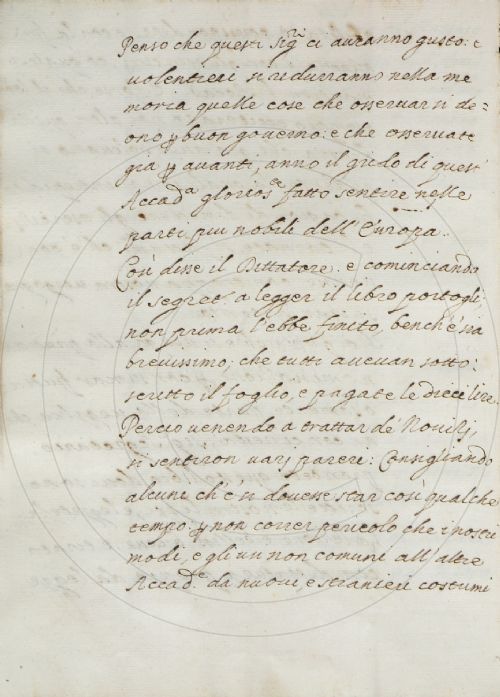 Penso che questi sig.ri ci auranno gusto: e
uolentieri si ridurranno nella me
moria quelle cose che osseruar si de=
ono p buon gouerno: e che osseruate
già p auanti, anno il grido di quest
Accad.a glorios.a fatto sentire nelle
parti piu nobili dell'Europa.
Così disse il Dittatore: e cominciando
il segret.o a legger il libro portogli
non prima l'ebbe finito, benchè sia
breuissimo, che tutti aueuan sotto:
scritto il foglio, e pagate le dieci lire.
Percio uenendo a trattar de' Nouizj,
si sentiron uarj pareri: Consigliando
alcuni ch'e' si douesse star così qualche
tempo: p non correr pericolo che i nostri
modi, e gli usi non comuni all'altre
Accad.e da nuoui e stranieri costumi